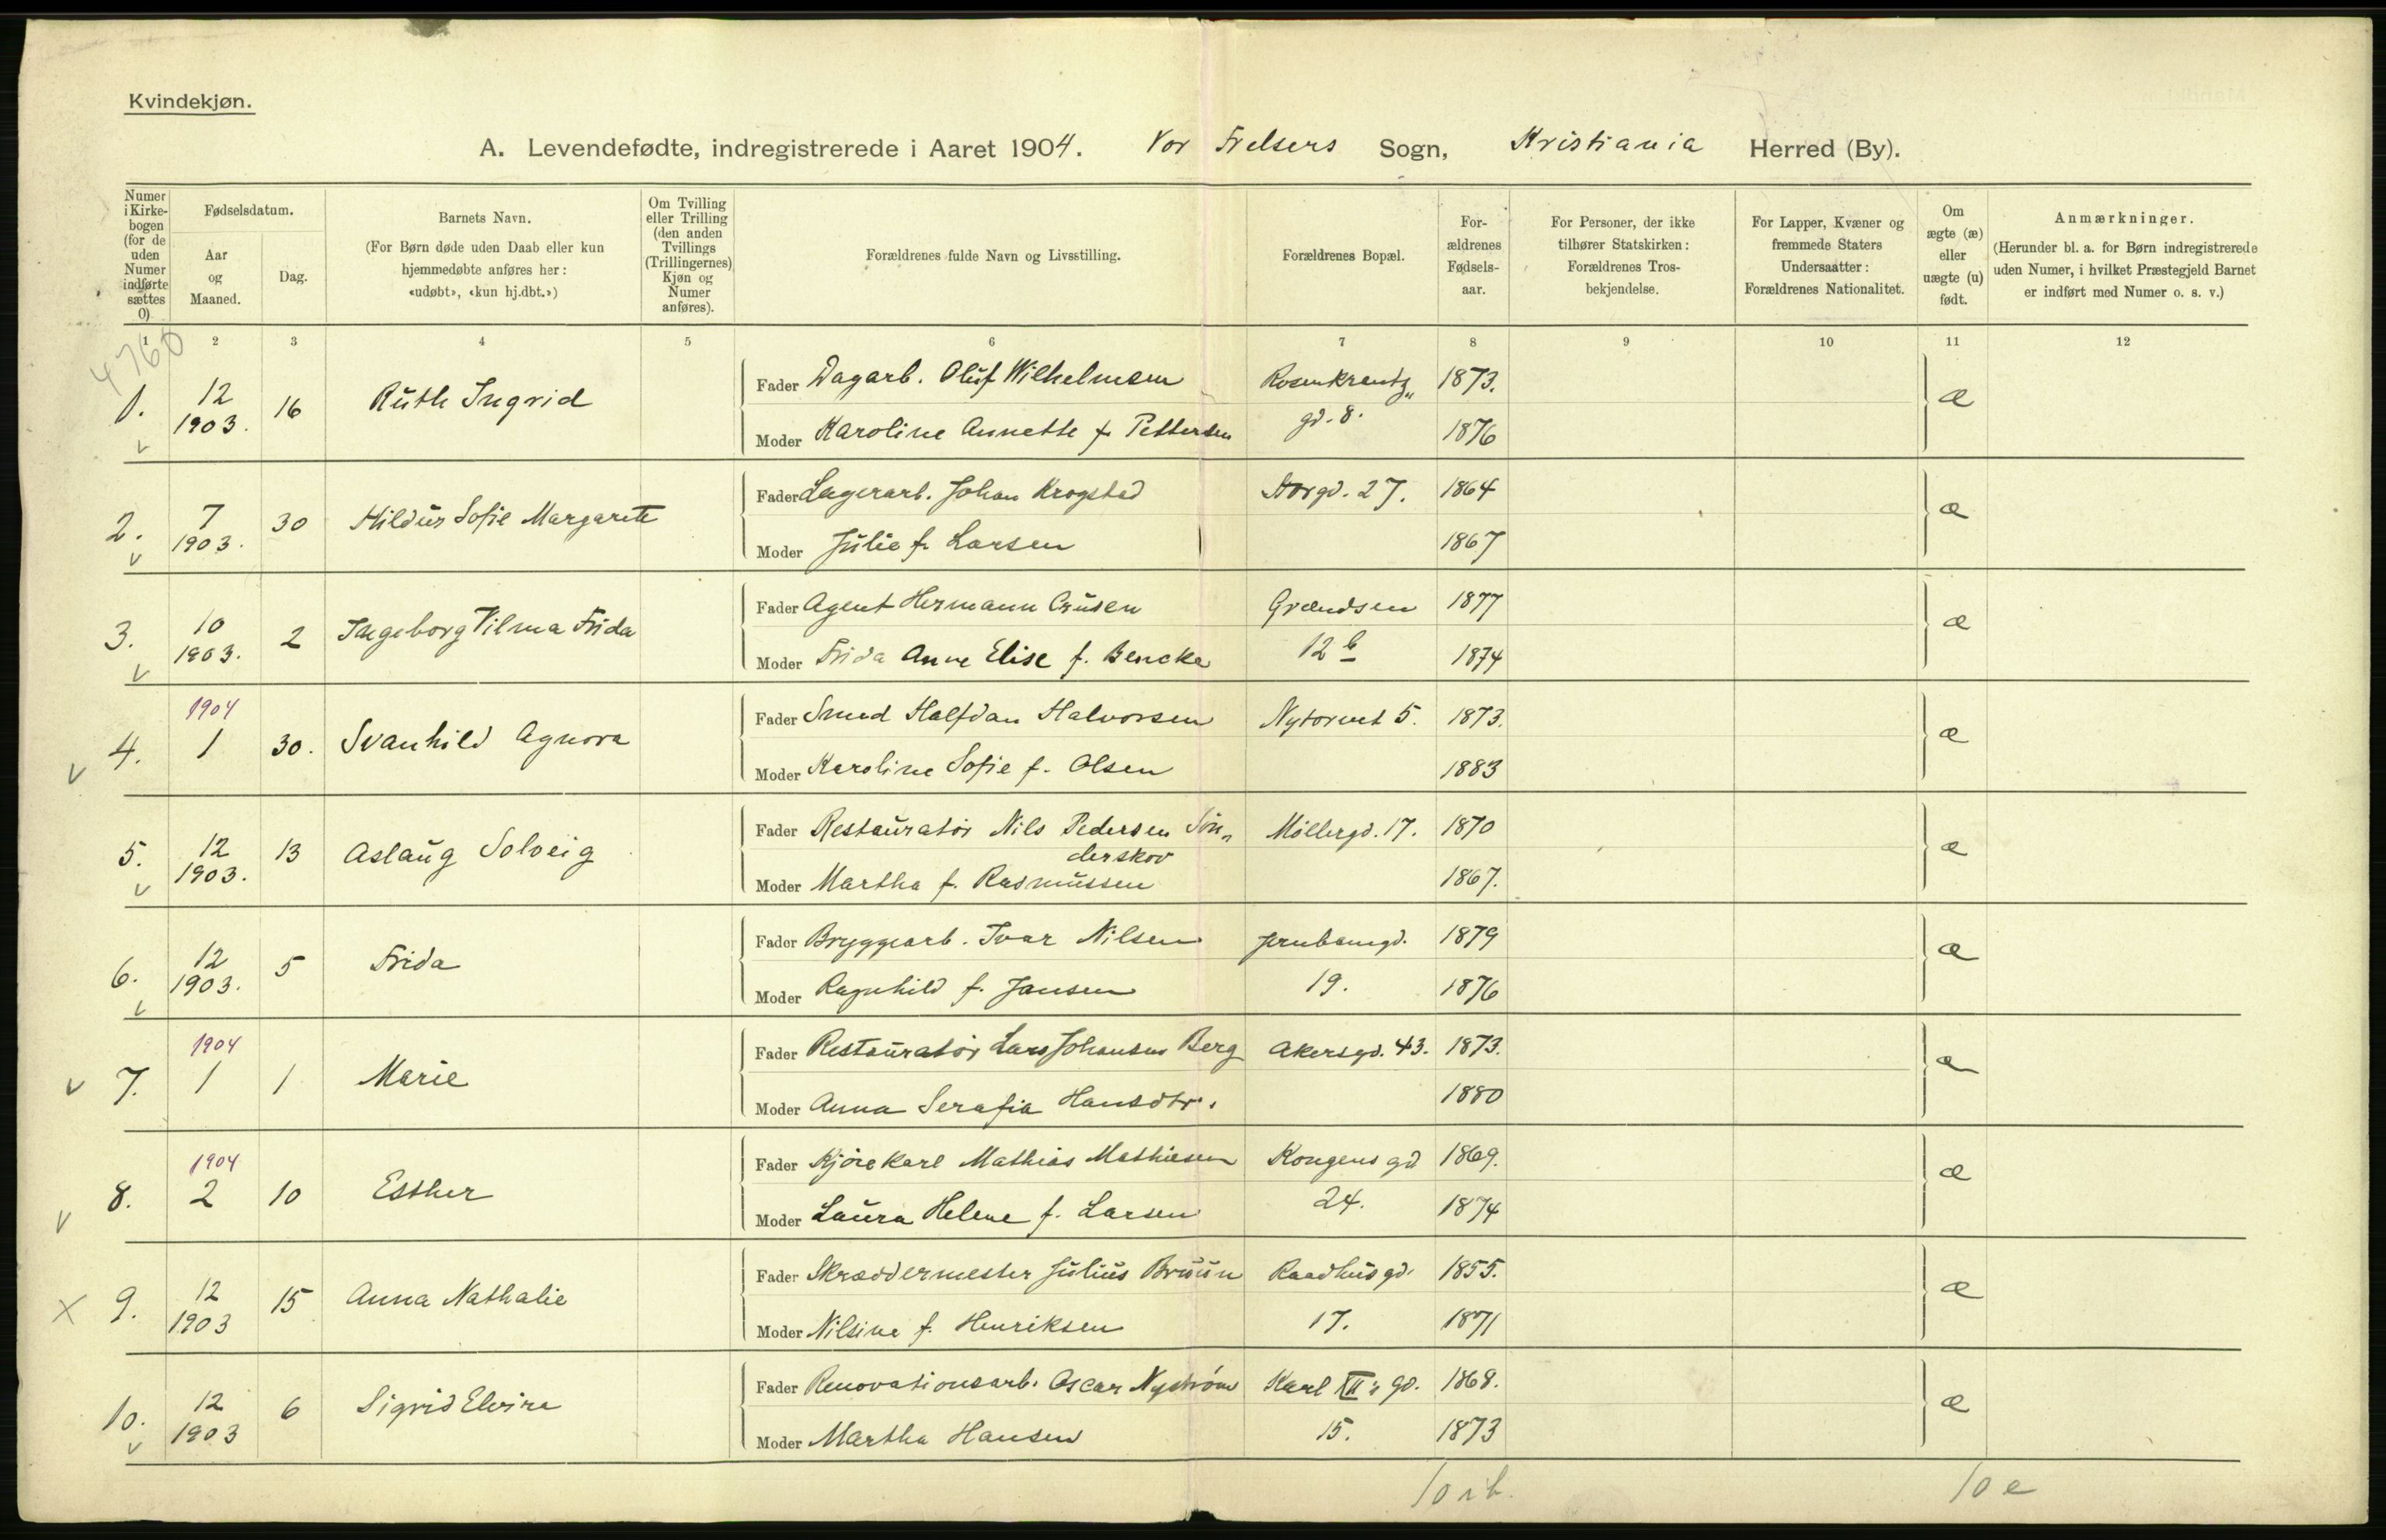 Kvindekjøn.
A. Levendefødte, indregistrerede i Aaret 1904. Vor Frelsers Sogn, Kristiania Herred (By).
Numer i Kirkebogen (for de uden Numer indførte sættes 0)
Fødselsdatum.
Aar og Maaned.
Dag.
Barnets Navn.
(For Børn døde uden Daab eller kun hjemmedøbte anføres her: «udøbt», «kun hj.dbt.»)
Om Tvilling eller Trilling (den anden Tvillings (Trillingernes) Kjøn og Numer anføres).
Forældrenes fulde Navn og Livsstilling.
Forældrenes Bopæl.
Forældrenes Fødselsaar.
For Personer, der ikke tilhører Statskirken: Forældrenes Trosbekjendelse.
For Lapper, Kvæner og fremmede Staters Undersaatter: Forældrenes Nationalitet.
Om ægte (æ) eller uægte (u) født.
Anmærkninger.
(Herunder bl. a. for Børn indregistrerede uden Numer, i hvilket Præstegjeld Barnet er indført med Numer o. s. v.)
1 2 3 4 5 6 7 8 9 10 11 12
4760
1. 12 1903. 16 Ruth Ingrid Fader Dagarb. Oluf Wilhelmsen Rosenkrantz„ 1873. æ
Moder Karoline Annette f. Pettersen gd. 8. 1876
2. 7 1903. 30 Hildur Sofie Margarete Fader Lagerarb. Johan Krogstad Storgd. 27. 1864 æ
Moder Julie f. Larsen 1867
3. 10 1903. 2 Ingeborg Vilma Frida Fader Agent Hermann Crusen Grændsen 1877 æ
Moder Frida Anne Elise f. Bencke 12 b 1874
4. 1904 1 30. Svanhild Agnora Fader Smed Halfdan Halvorsen Nytorvet 5. 1873. æ
Moder Karoline Sofie f. Olsen 1883
5. 12 1903. 13 Aslaug Solveig Fader Restauratør Nils Pedersen Søn„ Møllergd. 17. 1870 æ
derskov
Moder Martha f. Rasmussen 1867.
6. 12 1903. 5 Frida Fader Bryggearb. Ivar Nilsen Jernbanegd. 1879 æ
Moder Ragnhild f. Jansen 19. 1876
7. 1904 1 1 Marie Fader Restauratør Lars Johansen Berg Akersgd. 43. 1873. æ
Moder Anna Serafia Hansdtr. 1880
8. 1904 2 10 Esther Fader Kjørekarl Mathias Mathiesen Kongens gd 1869. æ
Moder Laura Helene f. Larsen 24. 1874
9. 12 1903 15 Anna Nathalie Fader Skræddermester Julius Bruun Raadhusgd. 1855. æ
Moder Nilsine f. Henriksen 17. 1871
10. 12 1903 6 Sigrid Elvira Fader Renovationsarb. Oscar Nystrøm Karl XII's gd. 1868. æ
Moder Martha Hansen 15. 1873
10 æ